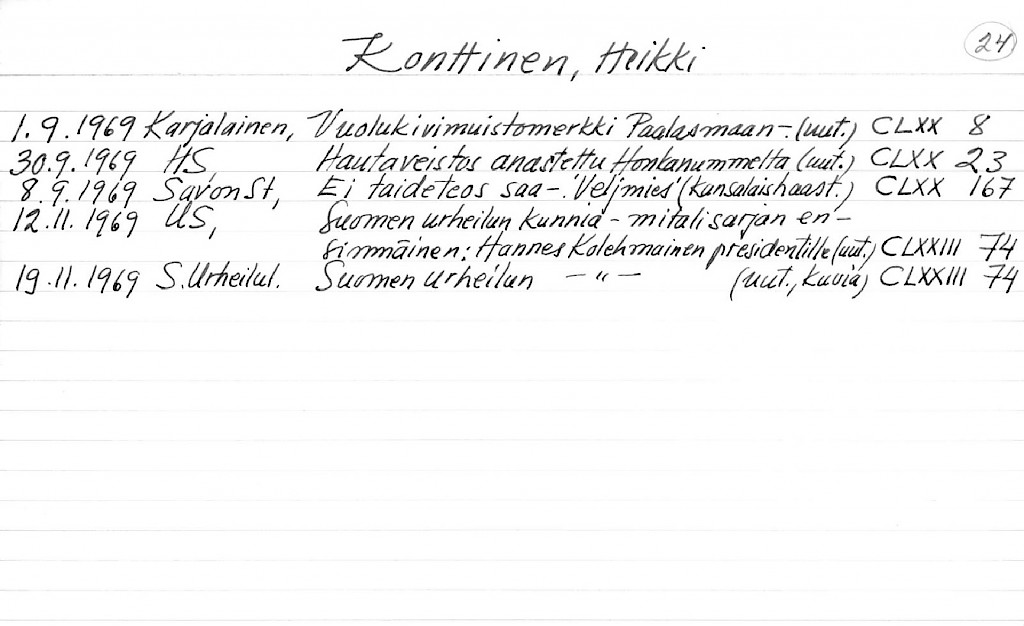 24
Konttinen, Heikki
1.9.1969 Karjalainen, Vuolukivimuistomerkki Paalasmaan-. (uut.) CLXX 8
30.9.1969 HS, Hautaveistos anastettu Honkanummelta (uut.) CLXX 23
8.9.1969 Savon St, Ei taideteos saa-. 'Veljmies' (kansalaishaast.) CLXX 167
12.11.1969 US, Suomen urheilun kunnia-mitalisarjan en-
simmäinen: Hannes Kolehmainen presidentille (uut.) CLXXIII 74
19.11.1969 S.Urheilul. Suomen urheilun — " — (uut., kuvia) CLXXIII 74